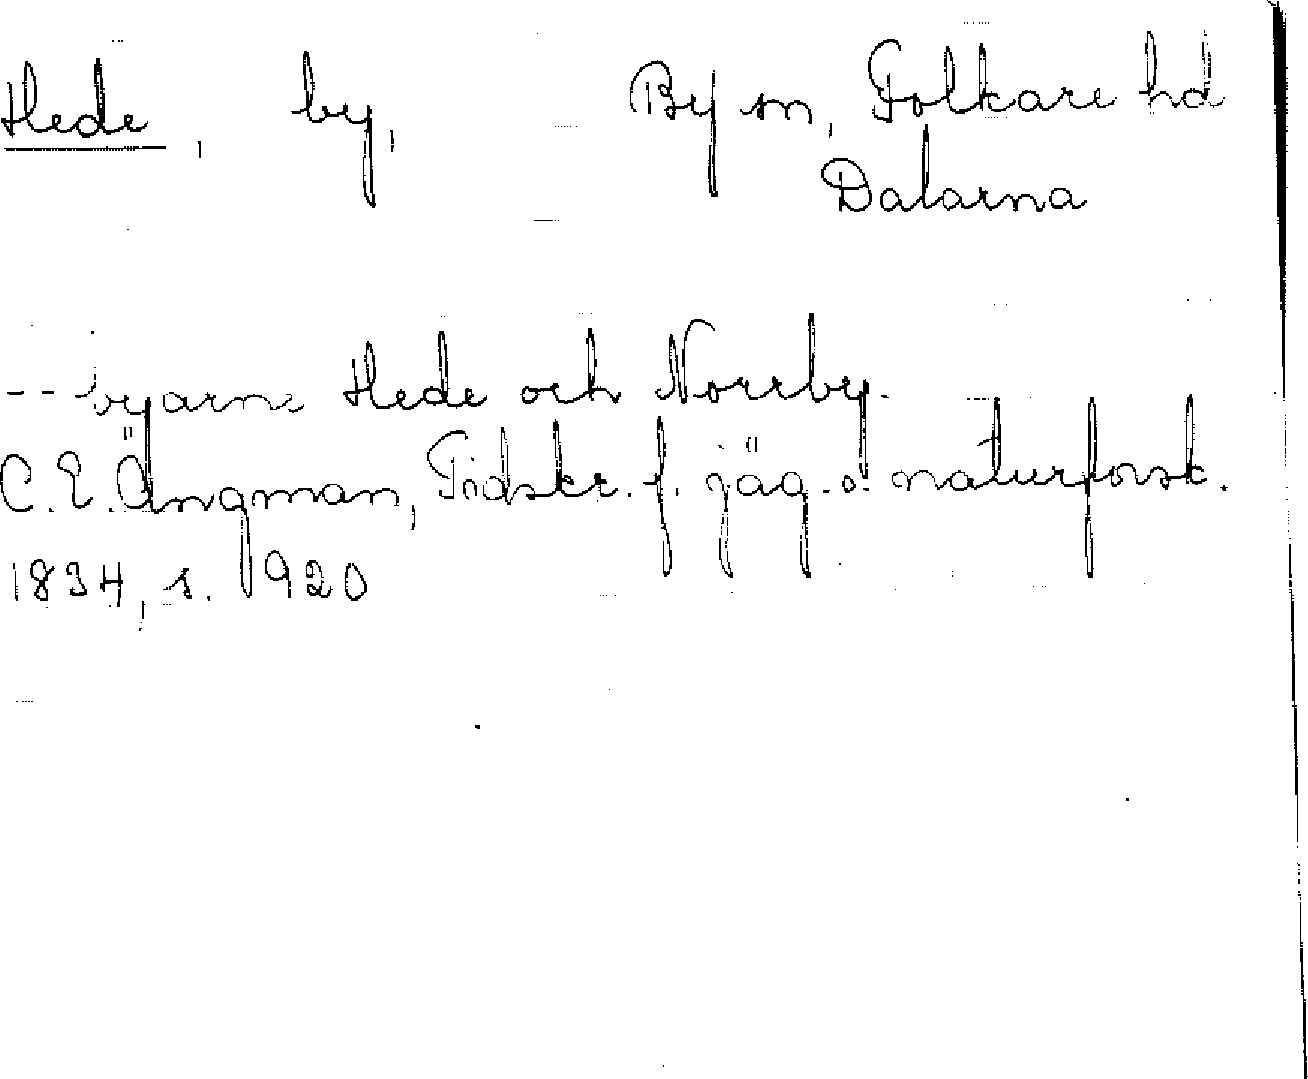 Hede, by, By sn, Folkare hd
Dalarna
-- byarne Hede och Norrby.
C. E. Ängman, Tidskr. f. jäg. o. naturforsk.
1834, s. 920